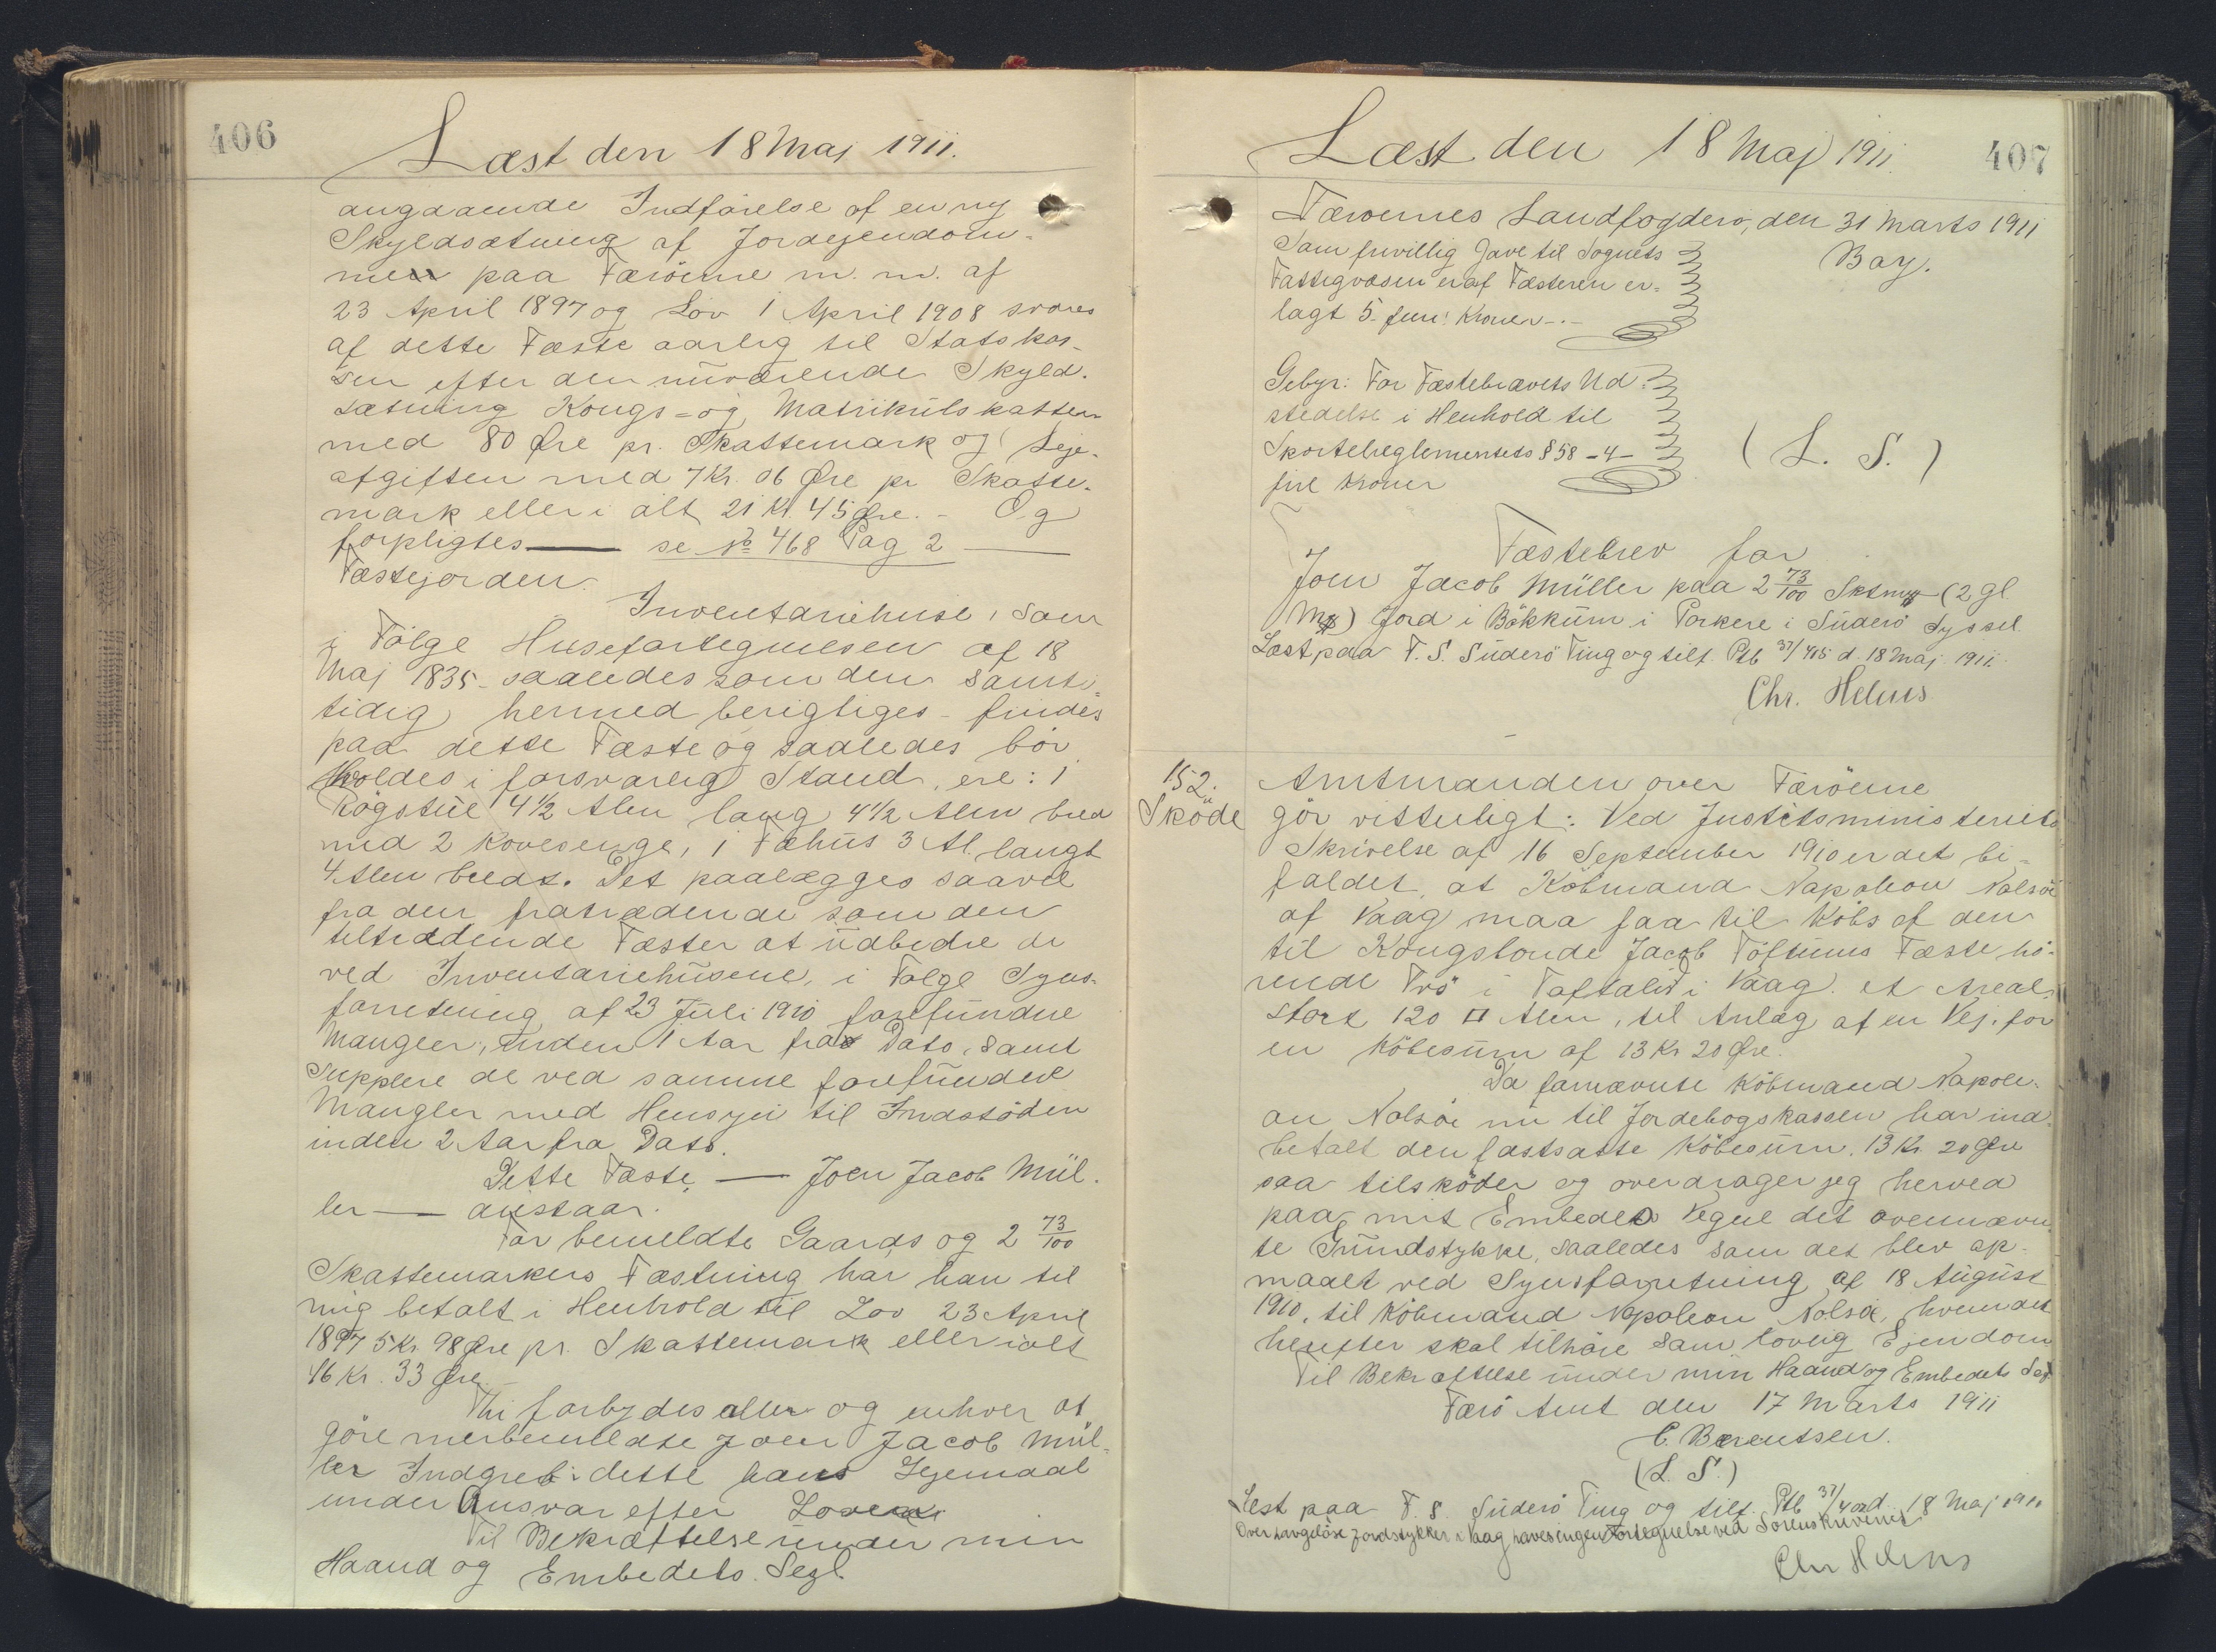 406
Læst den 18 Maj 1911.
angaaende Indførelse af en ny
Skyldsætning af Jordejendom-
men paa Færöerne m. m. af
23 April 1897 og Lov 1 April 1908 svares
af dette Fæste aarlig til Statskas-
sen efter den nuværende Skyld-
sætning Kongs- og Matrikulskatten
med 80 Øre pr. Skattemark og Leje-
afgiften med 7 Kr. 06 Øre pr Skatte-
mark eller i alt 21 Kr 45 Øre. - Og
forpligtes — se No 468 Pag 2 —
Fæstejorden.
Inventariehuse, som
i Følge Husefortegnelsen af 18
Maj 1835 - saaledes som den samti-
tidig hermed berigtiges - findes
paa dette Fæste og saaledes bör
holdes i forsvarlig Stand, ere: 1
Rögstue 4½ Alen lang 4½ Alen bred
med 2 Kovesenge, 1 Fæhus 3 Al. langt
4 Alen bredt. Det paalægges saavel
fra den fratrædende som den
tiltrædende Fæster at udbedre de
ved Inventariehusene, i Følge Syns-
forretning af 23 Juli 1910 forefundne
Mangler, inden 1 Aar fra Dato, samt
supplere de ved samme forefundne
Mangler med Hensyn til Indstöden
inden 2 Aar fra Dato.
Dette Fæste — Joen Jacob Mül-
ler — anstaar.
For bemeldte Gaards og 2 73/100
Skattemarkers Fæstning har han til
mig betalt i Henhold til Lov 23 April
1897 5 Kr. 98 Øre pr. Skattemark eller ialt
16 Kr. 33 Øre.
Thi forbydes alle og enhver at
göre merbemeldte Joen Jacob Mül-
ler Indgreb i dette hans Lejemaal
under Ansvar efter Loven.
Til Bekræftelse under min
Haand og Embedets Segl
407
Læst den 18 Maj 1911.
Færoernes Landfogderi, den 31 Marts 1911
Som frivillig Gave til Sognets
Bay.
Fattigvæsen er af Fæsteren er-
lagt 5 fem Kroner -.-
Gebyr: For Fæstebrevets Ud-
stedelse i Henhold til
Sportelreglementets § 58 - 4 -
fire Kroner
(L. S.)
Fæstebrev for
Joen Jacob Müller paa 2 73/100 Sktmk (2 gl
Mk) Jord i Bökkum i Porkere i Süderö Syssel
Læst paa F. S. Süderö Ting og tilf. Ptb 37/415 d. 18 Maj 1911.
Chr. Helms
152.
Sköde
Amtmanden over Færöerne
gör vitterligt: Ved Justitsministeriets
Skrivelse af 16 September 1910 er det bi-
faldet, at Köbmand Napoleon Nolsöe
af Vaag maa faa til Köbs af den
til Kongsbonde Jacob Töftums Fæste hö-
rende Trö i Toftalid i Vaag. et Areal,
stort 120 □ Alen, til Anlæg af en Vej, for
en Köbesum af 13 Kr 20 Øre.
Da fornævnte Köbmand Napole-
on Nolsöe nu til Jordebogskassen har ind-
betalt den fastsatte Köbesum, 13 Kr. 20 Øre
saa tilsköder og overdrager jeg herved
paa mit Embedes Vegne det ovennævn-
te Grundstykke, saaledes som det blev op-
maalt ved Synsforretning af 18 August
1910, til Köbmand Napoleon Nolsöe, hvem det
herefter skal tilhöre som lovlig Ejendom
Til Bekræftelse under min Haand og Embedets Segl
Færö Amt den 17 Marts 1911
C. Bærentsen.
(L. S.)
Læst paa F. S. Süderö Ting og tilf. Ptb 37/402 d. 18 Maj 1911
Over havgelöse Jordstykker i Vaag haves ingen Fortegnelse ved Sorenskriveriet
Chr Helms